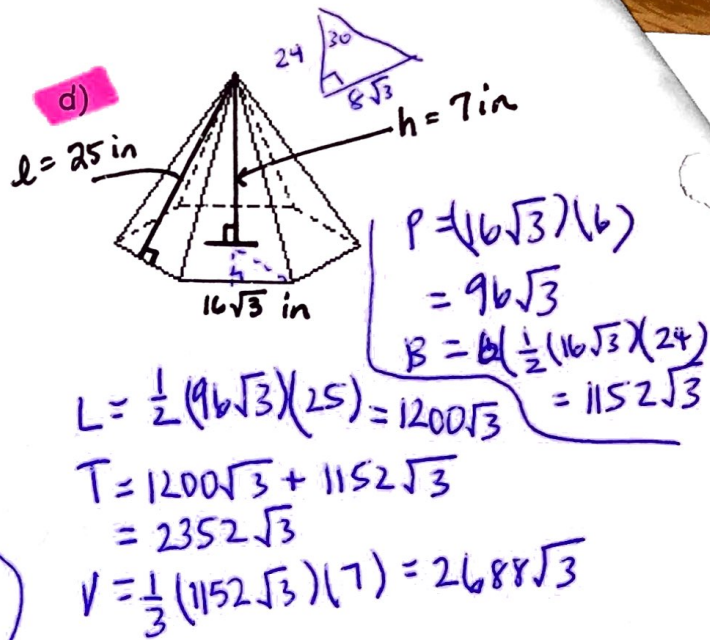 24
30
8√3
d)
h = 7in
l = 25 in
16√3 in
P = (16√3)(6)
= 96√3
B = 6(½(16√3)(24)
= 1152√3
L = ½(96√3)(25) = 1200√3
T = 1200√3 + 1152√3
= 2352√3
V = ⅓(1152√3)(7) = 2688√3